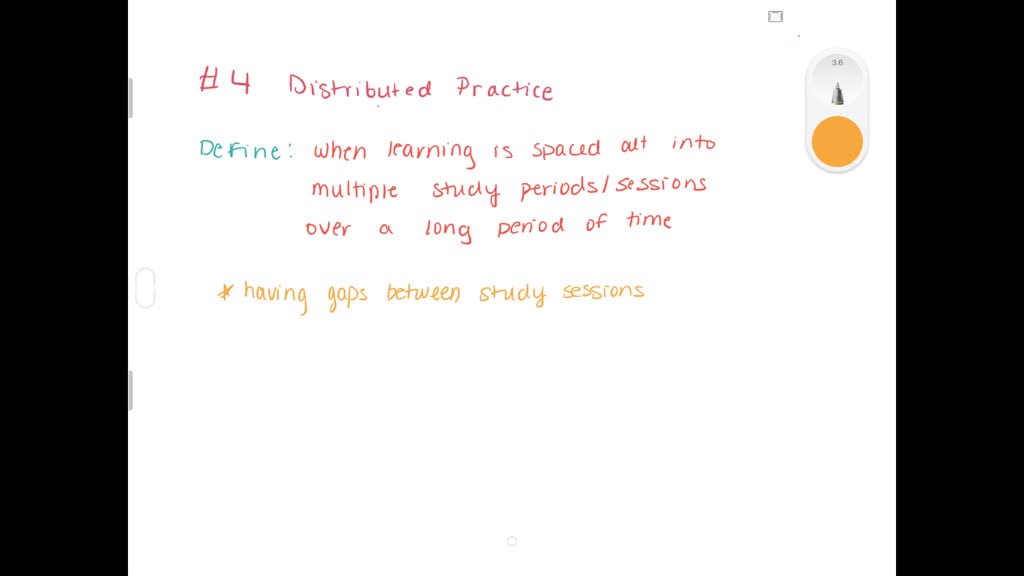 3.6
#4 Distributed Practice
Define: when learning is spaced out into
multiple study periods/sessions
over a long period of time
* having gaps between study sessions